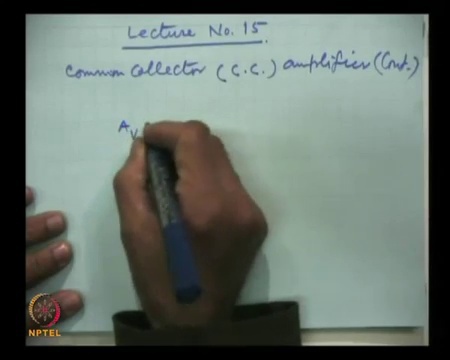 Lecture No. 15.
Common Collector (C.C.) amplifier (Cont.)
Av
NPTEL